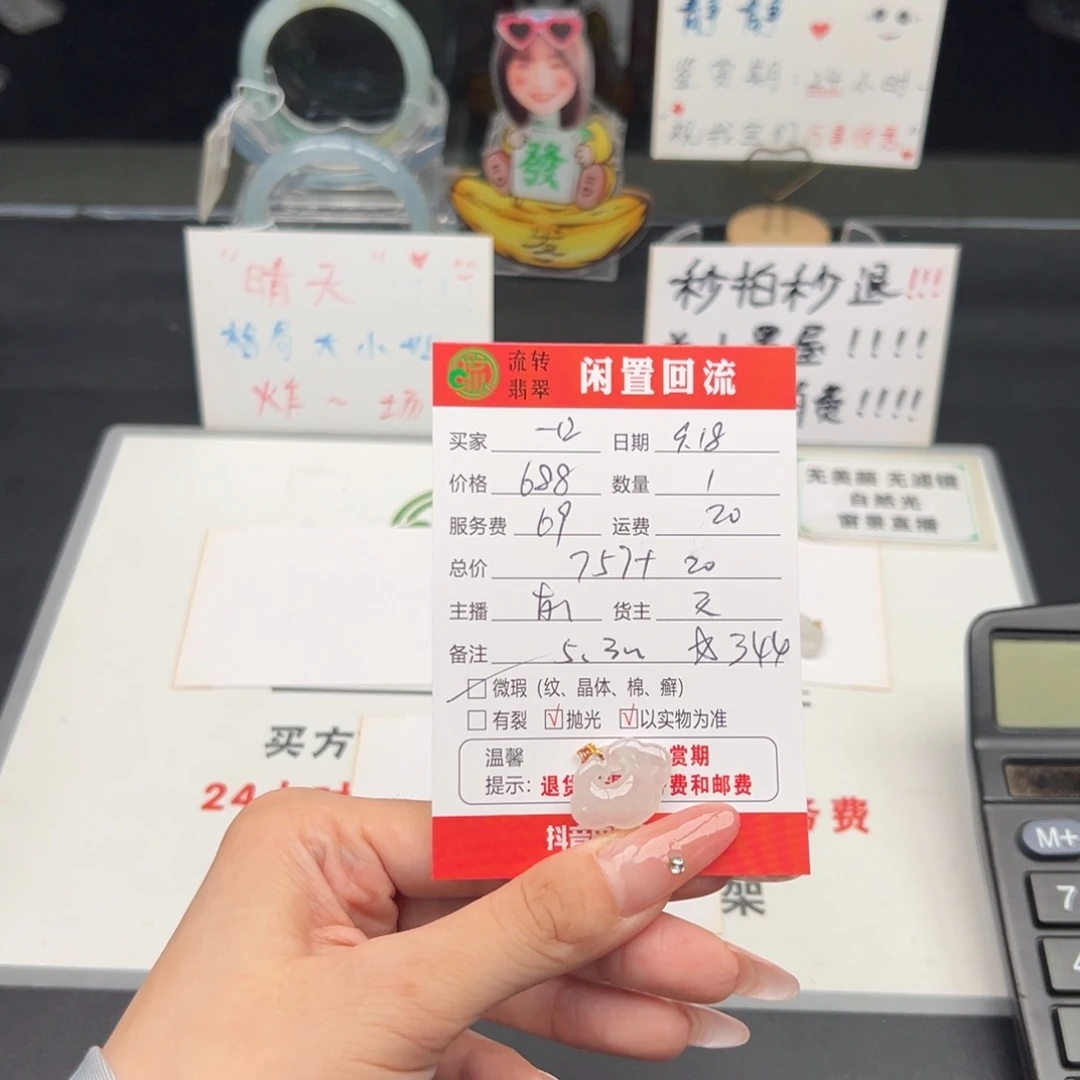 静静
鉴赏期：24小时
祝我宝们万事顺意
發
"晴天"
格局大小姐
炸~场
秒拍秒退!!!
小黑屋!!!!
消费!!!!
流转
翡翠
闲置回流
买家 日期 9.18
价格 688 数量 1
服务费 69 运费 20
总价 757+ 20
主播 货主
备注 5.3 344
微瑕（纹、晶体、棉、癣）
有裂 √抛光 √以实物为准
温馨 赏期
提示：退货 费和邮费
抖音
无美颜 无滤镜
自然光
窗景直播
买方
24 务费
架
M+
7
4